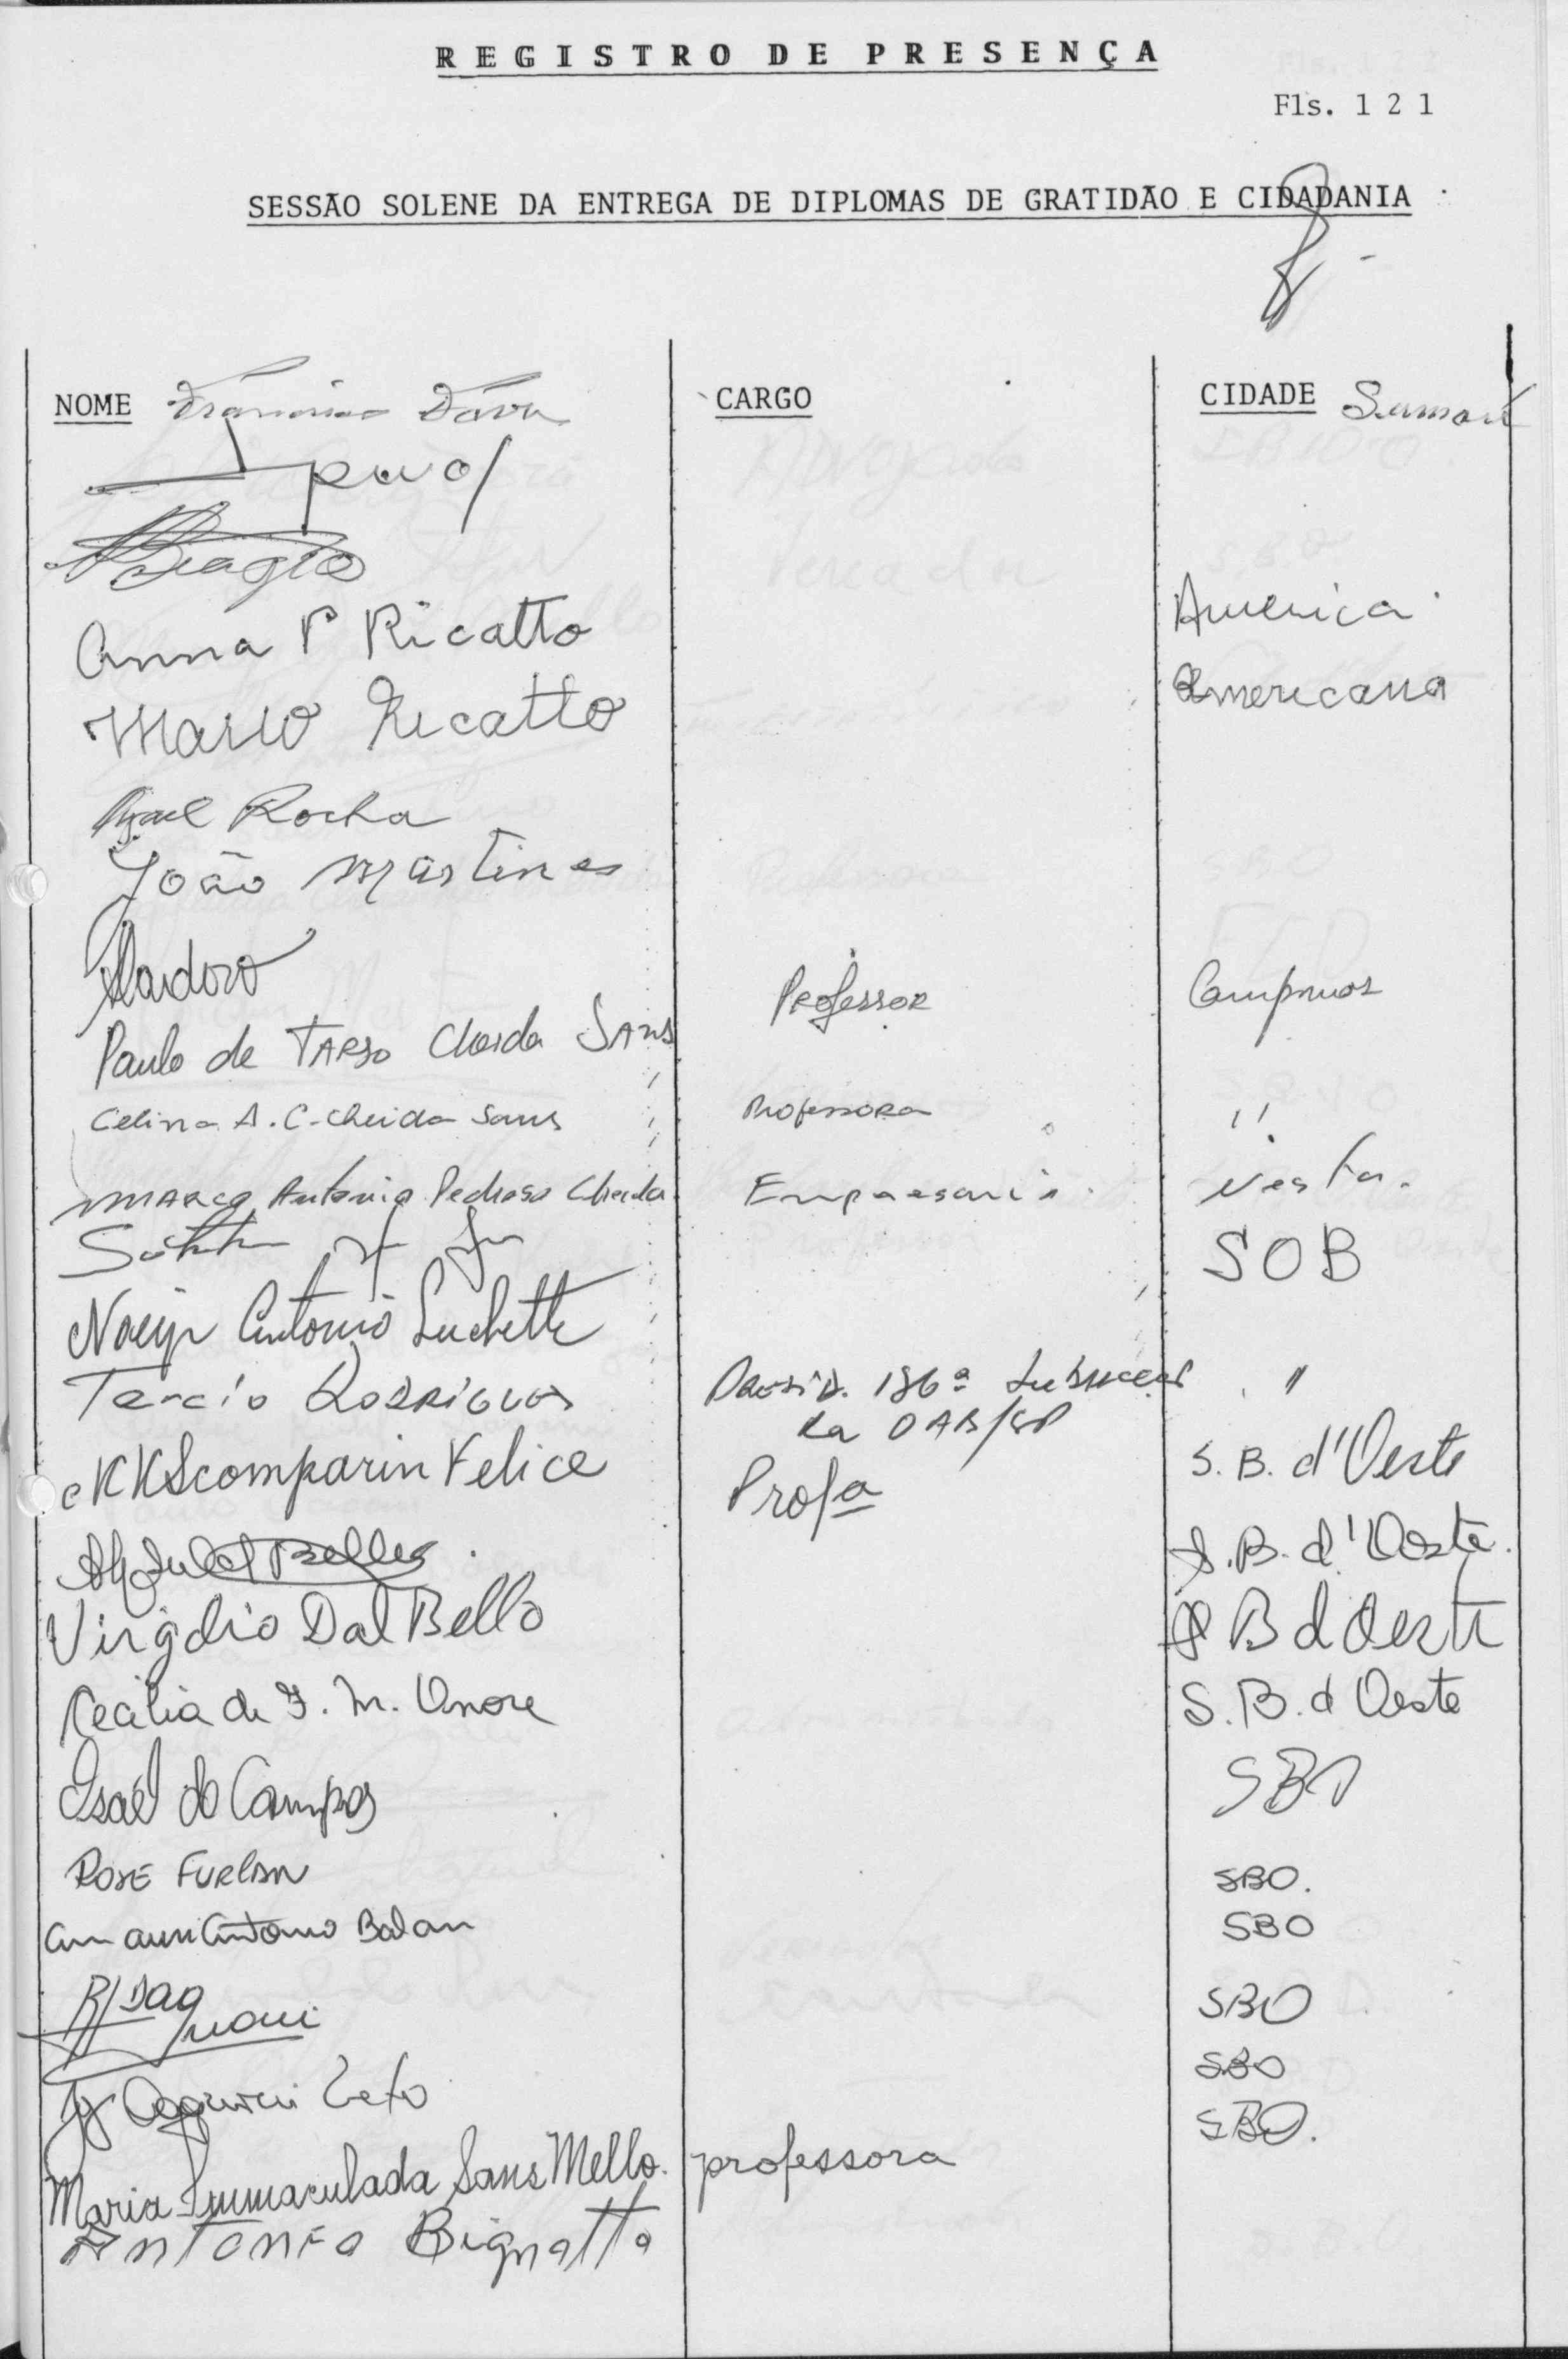 REGISTRO DE PRESENÇA
Fls. 121
SESSÃO SOLENE DA ENTREGA DE DIPLOMAS DE GRATIDÃO E CIDADANIA
NOME CARGO CIDADE Sumaré
Anna P Ricatto America
Mario Ricatto Americana
Rocha
João Martines
Professor Campinas
Paulo de TARSO Cheida SANS
Celina A. C. Cheida Sans Professora "
MARCO Antonio Pedroso Cheida Empresario Nesta.
SOB
Antonio Luchetti
Tercio RODRIGUES Presid. 186ª Subsecc "
da OAB/SP
Scomparin Felice Profa S. B. d'Oeste
S. B. d'Oeste.
Virgilio Dal Bello S B d Oeste
Cecilia de F. M. Amore S. B. d Oeste
Isael de Campos SBO
ROSE FURLAN SBO.
Amauri Antonio Balan SBO
SBO
SBO
Neto SBO.
Maria Immaculada Sans Mello. professora
Antonio Bignotto